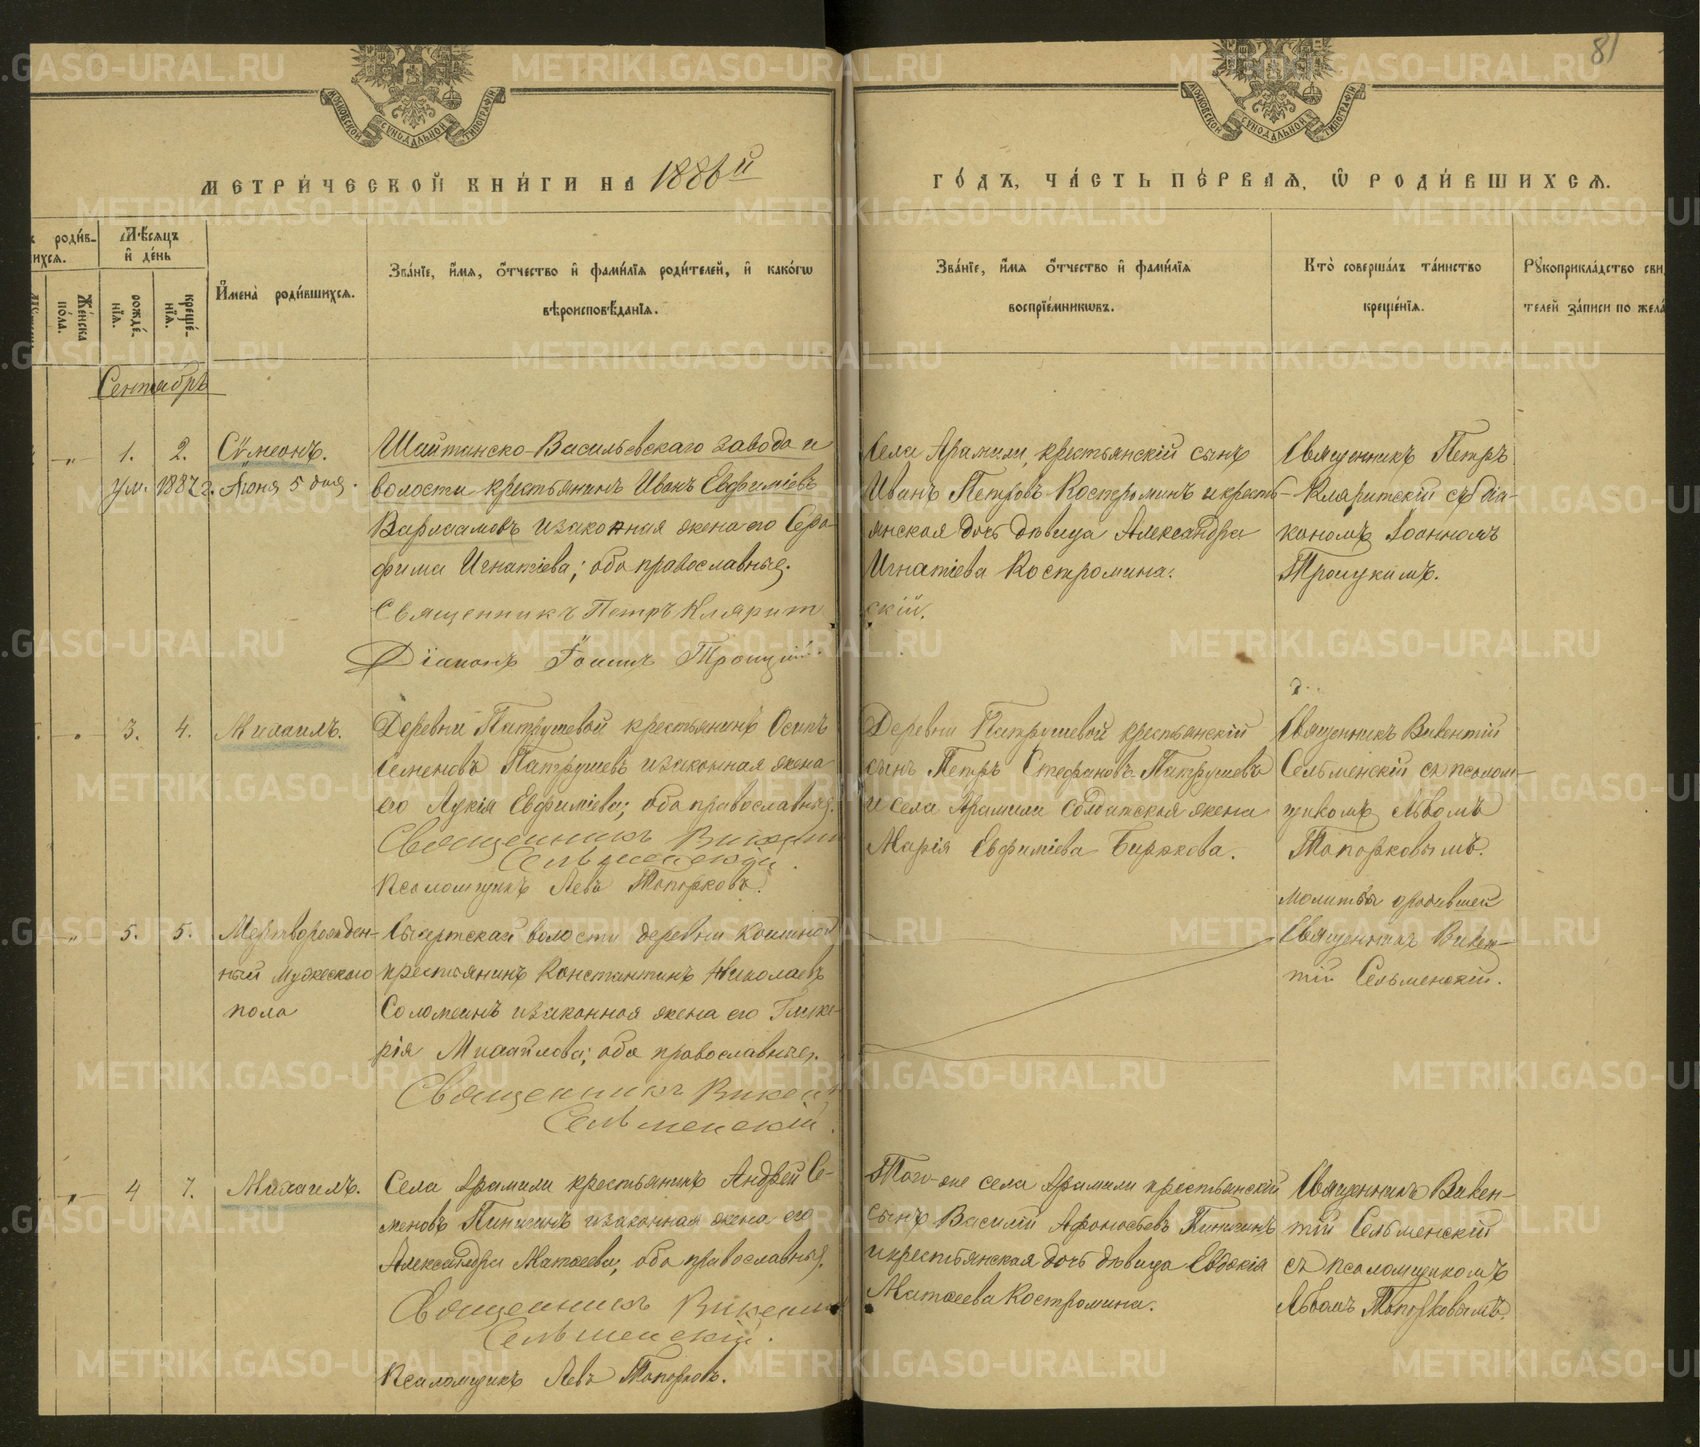 81
МОСКОВСКОЙ СѴНОДАЛЬНОЙ ТИПОГРАФІИ
МОСКОВСКОЙ СѴНОДАЛЬНОЙ ТИПОГРАФІИ
МЕТРИ́ЧЕСКОЙ КНИ́ГИ НА 1886й
ГО́ДЪ, ЧА́СТЬ ПЕ́РВАѦ, Ѽ РОДИ́ВШИХСѦ.
роди́в-
ихсѧ.
Же́нска
по́ла.
Мѣ́сѧцъ
и҆ де́нь
рожде́-
нїѧ.
креще́-
нїѧ.
И҆мена̀ роди́вшихсѧ.
Зва́нїе, и҆́мѧ, ѻ҆́тчество и҆ фами́лїѧ роди́телей, и҆ како́гѡ
вѣроисповѣ́данїѧ.
Зва́нїе, и҆́мѧ ѻ҆́тчество и҆ фами́лїѧ
воспрїе́мникѡвъ.
Кто̀ соверша́лъ та́инство
креще́нїѧ.
Рꙋкоприкла́дство сви
телей за́писи по жела́
Сентябрь
1. 2. Сѵмеонъ.
ум. 1887 г. Іюня 5 дня.
Шайтанско-Васильевскаго завода и
волости крестьянинъ Иванъ Евфиміевъ
Варлаамовъ и законная жена его Сера-
фима Игнатіева; оба православные.
Священникъ Петръ Клярит
скій.
Діаконъ Іоаннъ Троицкій.
Села Арамили, крестьянскій сынъ
Иванъ Петровъ Костроминъ и кресть-
янская дочь дѣвица Александра
Игнатіева Костромина.
Священникъ Петръ
Кляритскій съ діа-
кономъ Іоанномъ
Троицкимъ.
3. 4. Михаилъ.
Деревни Патрушевой крестьянинъ Осипъ
Семеновъ Патрушевъ и законная жена
его Лукія Евфиміева; оба православные.
Священникъ Викентій
Сельменскій.
Псаломщикъ Левъ Топорковъ.
Деревни Патрушевой крестьянскій
сынъ Петръ Стефановъ Патрушевъ
и села Арамили солдатская жена
Марія Евфиміева Бирюкова.
Священникъ Викентій
Сельменскій съ псалом-
щикомъ Львомъ
Топорковымъ.
5. 5. Мертворожден-
ный мужескаго
пола
Сысертской волости деревни
крестьянинъ Константинъ Николаевъ
Соломеинъ и законная жена его Глике-
рія Михайлова; оба православные.
Священникъ Викент
Сельменскій.
Молитвы
Священникъ Викен-
тій Сельменскій.
4 7. Михаилъ.
Села Арамили крестьянинъ Андрей Се-
меновъ Пинигинъ и законная жена его
Александра Матѳеева, оба православные.
Священникъ Викентій
Сельменскій.
Псаломщикъ Левъ Топорковъ.
Того-же села Арамили крестьянскій
сынъ Василій Афонасьевъ Пинигинъ
и крестьянская дочь дѣвица Евдокія
Матѳеева Костромина.
Священникъ Викен-
тій Сельменскій
съ псаломщикомъ
Львомъ Топорковымъ.
METRIKI.GASO-URAL.RU